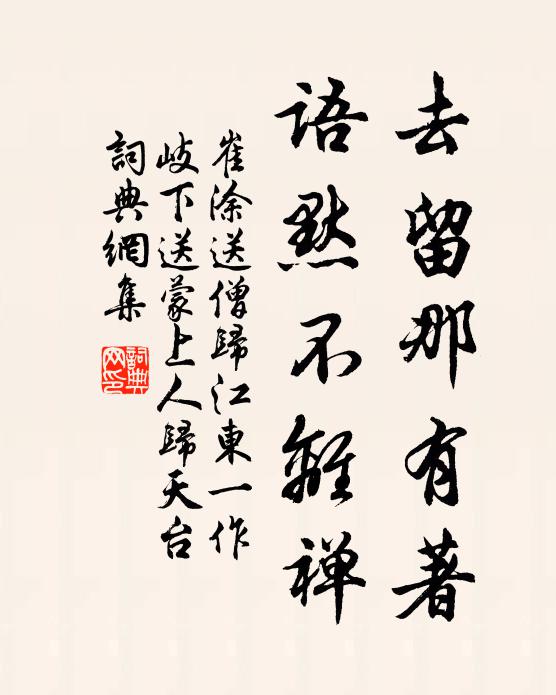 去留那有著
語默不離禪
崔涂送僧歸江東一作
岐下送蒙上人歸天台
詞典網集
詞典
网印